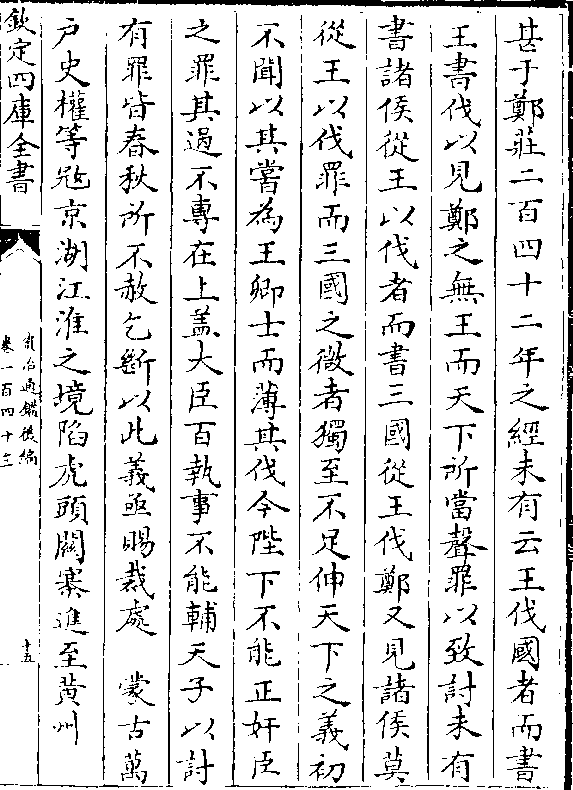 甚于鄭莊二百四十二年之經未有云王伐國者而書
王書伐以見鄭之無王而天下所當聲罪以致討未有
書諸侯從王以伐者而書三國從王伐鄭又見諸侯莫
從王以伐罪而三國之微者獨至不足伸天下之義初
不聞以其嘗為王卿士而薄其伐今陛下不能正奸臣
之罪其過不專在上盖大臣百執事不能輔天子以討
有罪皆春秋所不赦乞斷以此義亟賜裁處　蒙古萬
户史權等㓂京湖江淮之境陷虎頭關寨進至黄州
欽定四庫全書
資治通鑑後編
卷一百四十三
十五